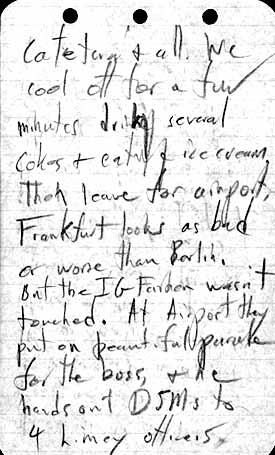 Cafeteria & all. We
cool off for a few
minutes drinking several
cokes & eating ice cream.
Then leave for airport.
Frankfurt looks as bad
or worse than Berlin.
But the IG Farben wasn't
touched. At Airport they
put on beautiful parade
for the boss, & he
hands out DSMs to
4 Limey officers.